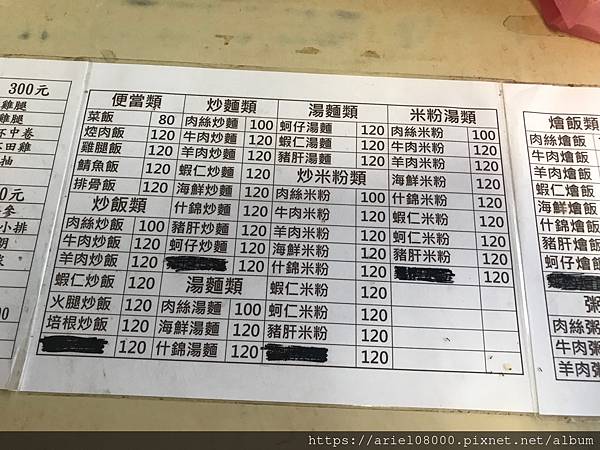 300元
雞腿
雞腿
中卷
田雞
抽
0元
參
小排
便當類
菜飯 80
焢肉飯 120
雞腿飯 120
鯖魚飯 120
排骨飯 120
炒飯類
肉絲炒飯 100
牛肉炒飯 120
羊肉炒飯 120
蝦仁炒飯 120
火腿炒飯 120
培根炒飯 120
120
炒麵類
肉絲炒麵 100
牛肉炒麵 120
羊肉炒麵 120
蝦仁炒麵 120
海鮮炒麵 120
什錦炒麵 120
豬肝炒麵 120
蚵仔炒麵 120
120
湯麵類
肉絲湯麵 100
海鮮湯麵 120
什錦湯麵 120
湯麵類
蚵仔湯麵 120
蝦仁湯麵 120
豬肝湯麵 120
炒米粉類
肉絲米粉 100
牛肉米粉 120
羊肉米粉 120
海鮮米粉 120
什錦米粉 120
蝦仁米粉 120
蚵仁米粉 120
豬肝米粉 120
120
米粉湯類
肉絲米粉 100
牛肉米粉 120
羊肉米粉 120
海鮮米粉 120
什錦米粉 120
蝦仁米粉 120
蚵仁米粉 120
豬肝米粉 120
120
燴飯類
肉絲燴飯
牛肉燴飯
羊肉燴飯
蝦仁燴飯
海鮮燴飯
什錦燴飯
豬肝燴飯
蚵仔燴飯
粥
肉絲粥
牛肉粥
羊肉粥
https://ariel08000.pixnet.net/album